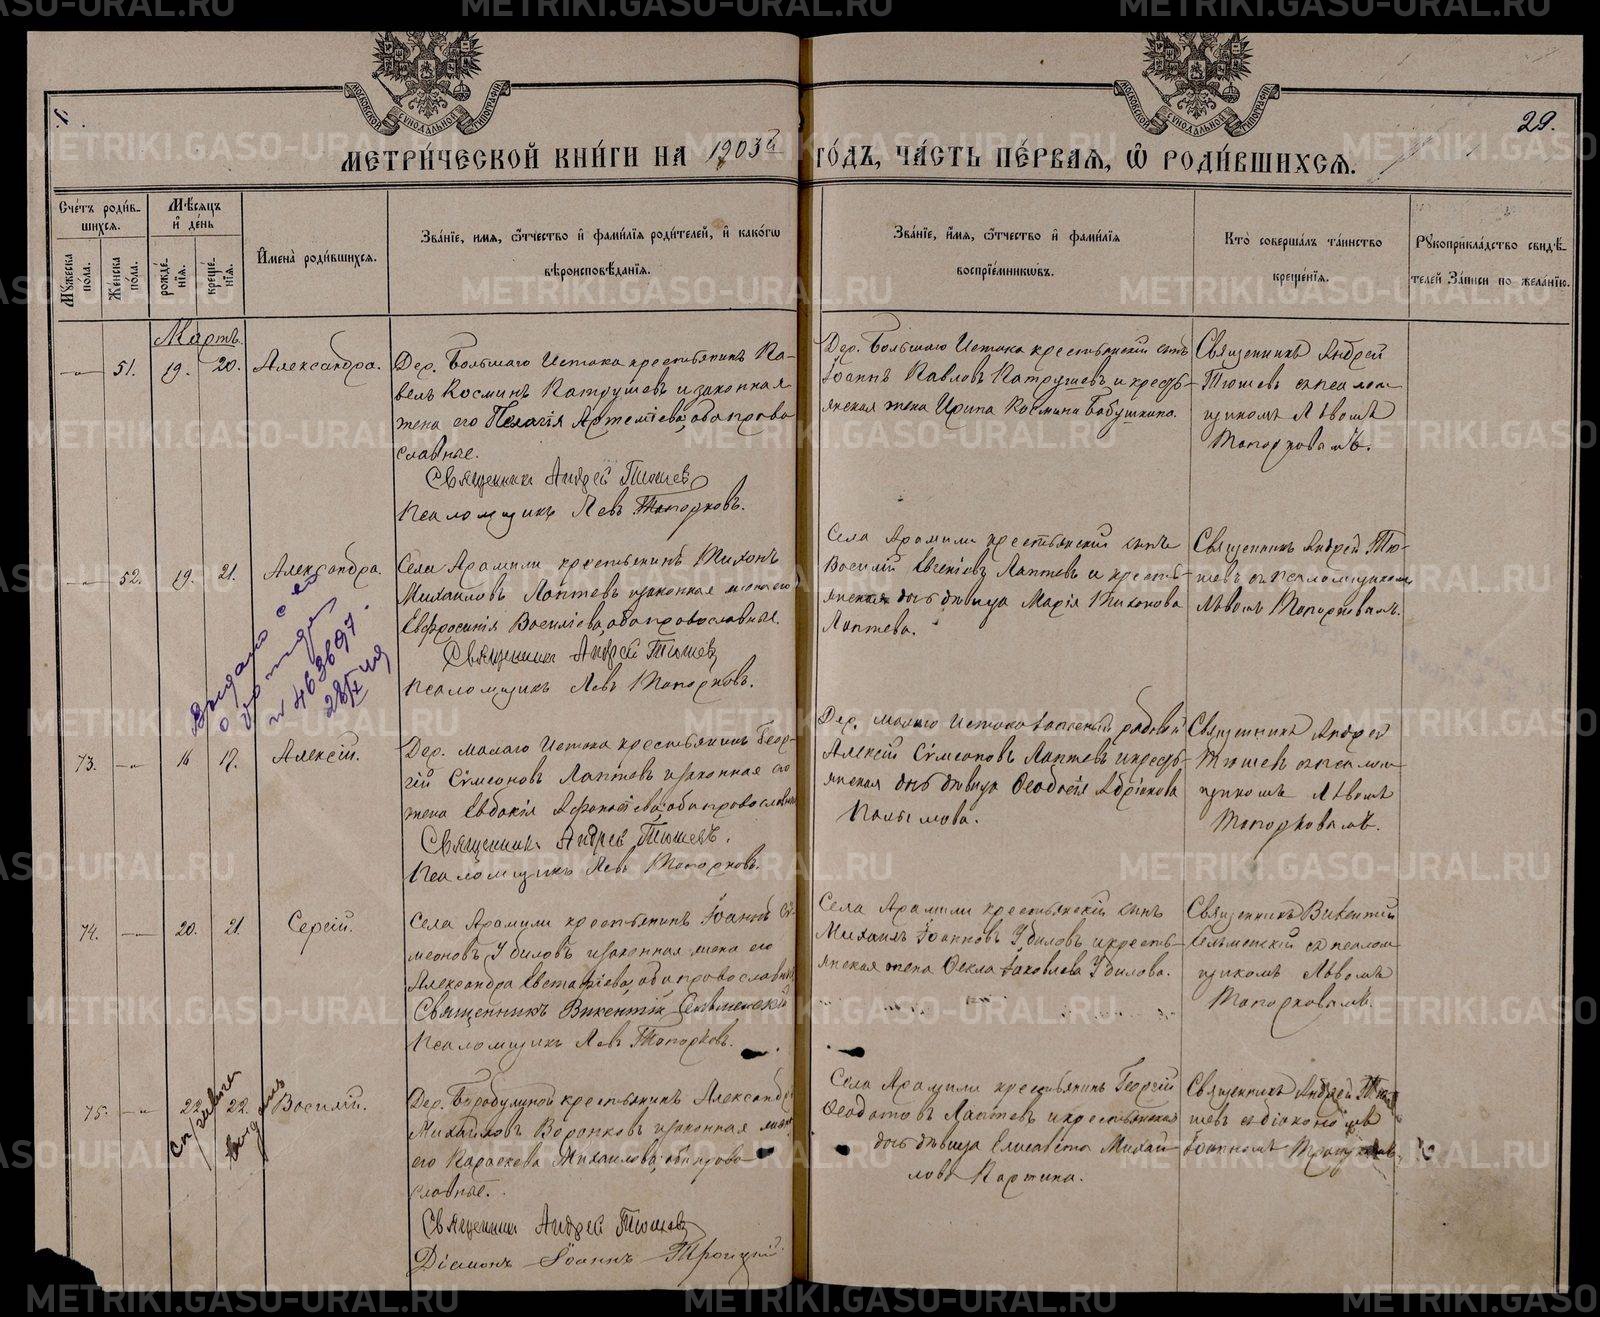 МЕТРИ́ЧЕСКОЙ КНИ́ГИ НА 1903й ГО́ДЪ, ЧА́СТЬ ПЕ́РВАЯ, Ѽ РОДИ́ВШИХСЯ.
29.
МОСКОВСКОЙ СѴНОДАЛЬНОЙ ТИПОГРАФІИ
МОСКОВСКОЙ СѴНОДАЛЬНОЙ ТИПОГРАФІИ
Счётъ роди́вшихся.
Мѣ́сяцъ и҆ де́нь
Мꙋ́жеска по́ла.
Же́нска по́ла.
рожде́нїя.
креще́нїя.
И҆мена̀ роди́вшихся.
Зва́нїе, и҆мя, ѻ҆́тчество и҆ фами́лїѧ роди́телей, и҆ како́гѡ
вѣроисповѣ́данїя.
Зва́нїе, и҆́мя, ѻ҆́тчество и҆ фами́лїѧ
воспрїе́мникѡвъ.
Кто̀ соверша́лъ та́инство
креще́нїя.
Рꙋкоприкла́дство свидѣ́-
телей за́писи по жела́нїю.
Мартъ.
51.
19.
20.
Александра.
Дер. Большаго Истока крестьянинъ Па-
велъ Косминъ Патрушевъ и законная
жена его Пелагія Артеміева, оба право
славные.
Священникъ Андрей Тюшевъ
Псаломщикъ Левъ Топорковъ.
Дер. Большаго Истока крестьянскій сынъ
Іоаннъ Павловъ Патрушевъ и кресть-
янская жена Ирина Космина Бабушкина.
Священникъ Андрей
Тюшевъ съ псалом
щикомъ Львомъ
Топорковымъ.
52.
19.
21.
Александра.
Села Арамили крестьянинъ Тихонъ
Михаиловъ Лаптевъ и законная жена его
Евфросинія Василіева, оба православные.
Священникъ Андрей Тюшевъ
Псаломщикъ Левъ Топорковъ.
Села Арамили крестьянскій сынъ
Василій Евгеніевъ Лаптевъ и кресть-
янская дочь дѣвица Марія Тихонова
Лаптева.
Священникъ Андрей Тю-
шевъ съ псаломщикомъ
Львомъ Топорковымъ.
Выдано с е
о рожде
№ 463697.
73.
16
17.
Алексій.
Дер. Малаго Истока крестьянинъ Геор-
гій Сѵмеоновъ Лаптевъ и законная его
жена Евдокія Аѳанасіева, оба православные
Священникъ Андрей Тюшевъ.
Псаломщикъ Левъ Топорковъ.
Дер. Малаго Истока рядовой
Алексій Сѵмеоновъ Лаптевъ и кресть-
янская дочь дѣвица Ѳеодосія Адріанова
Священникъ Андрей
Тюшевъ съ псалом
щикомъ Львомъ
Топорковымъ.
74.
20.
21.
Сергій.
Села Арамили крестьянинъ Іоаннъ Сѵ-
меоновъ Убиловъ и законная жена его
Александра Евстафіева, оба православные
Священникъ Викентій Сельменскій
Псаломщикъ Левъ Топорковъ.
Села Арамили крестьянскій сынъ
Михаилъ Іоанновъ Убиловъ и кресть-
янская жена Ѳекла Іаковлева Убилова.
Священникъ Викентій
Сельменскій съ псалом
щикомъ Львомъ
Топорковымъ.
75.
22.
22.
Василій.
Дер. крестьянинъ Александръ
Михаиловъ Воронковъ и законная жена
его Параскева Михаилова, оба право
славные.
Священникъ Андрей Тюшевъ
Діаконъ Іоаннъ Троицкій.
Села Арамили крестьянинъ Георгій
Ѳеодотовъ Лаптевъ и крестьянская
дочь дѣвица Елисавета Михаи-
лова
Священникъ Андрей Тю
шевъ съ діакономъ
Іоанномъ
METRIKI.GASO-URAL.RU